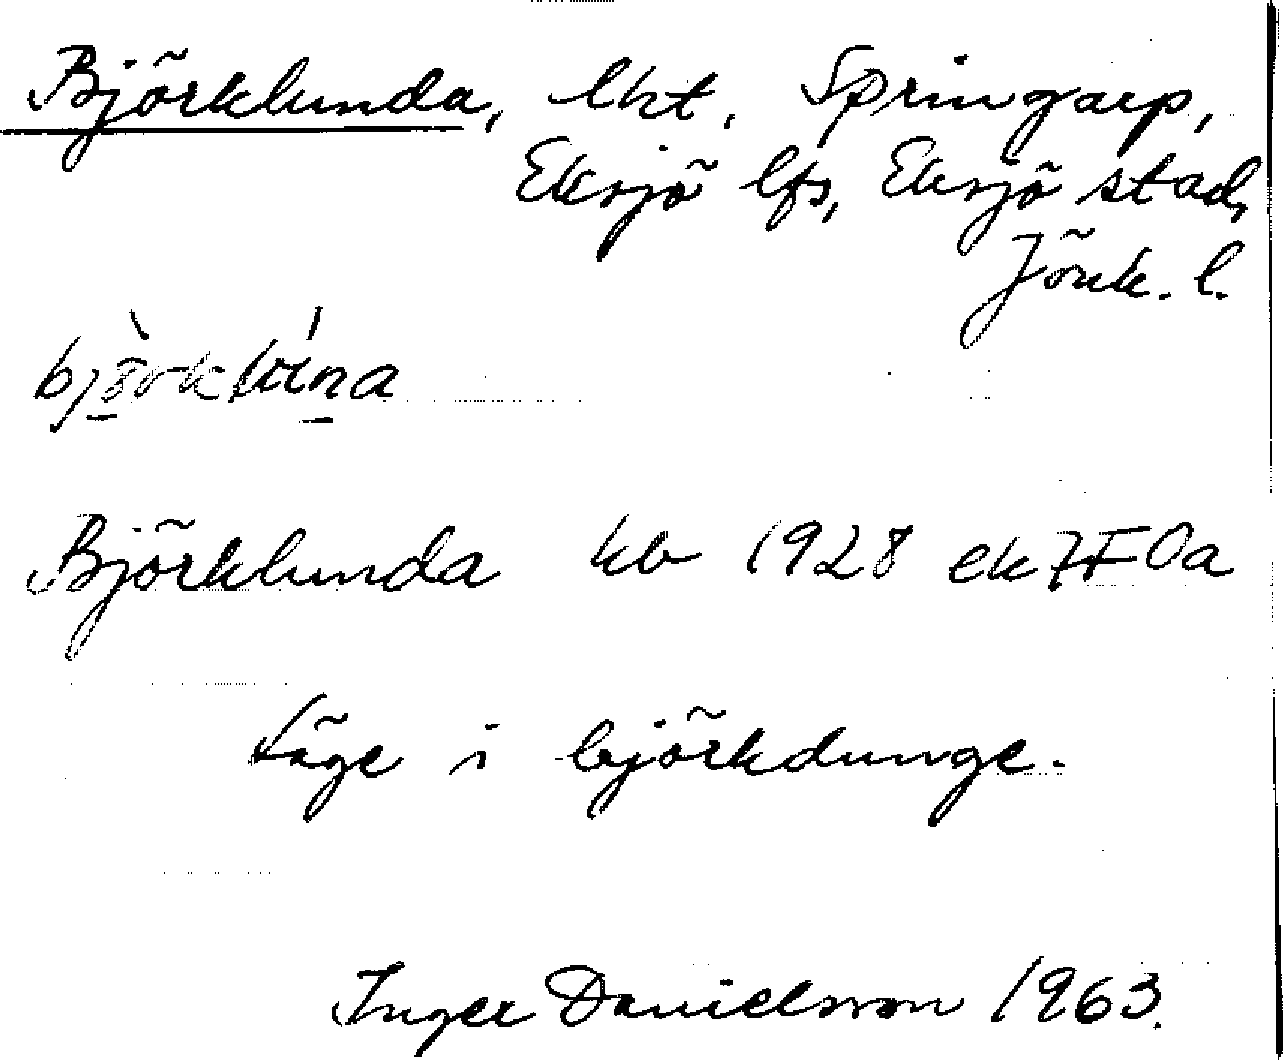 Björklunda, lht. Springarp,
Eksjö lfs, Eksjö stad,
Jönk. l.
Björklunda kb 1928 ek 7F0a
Läge i björkdunge.
Inger Danielsson 1963.